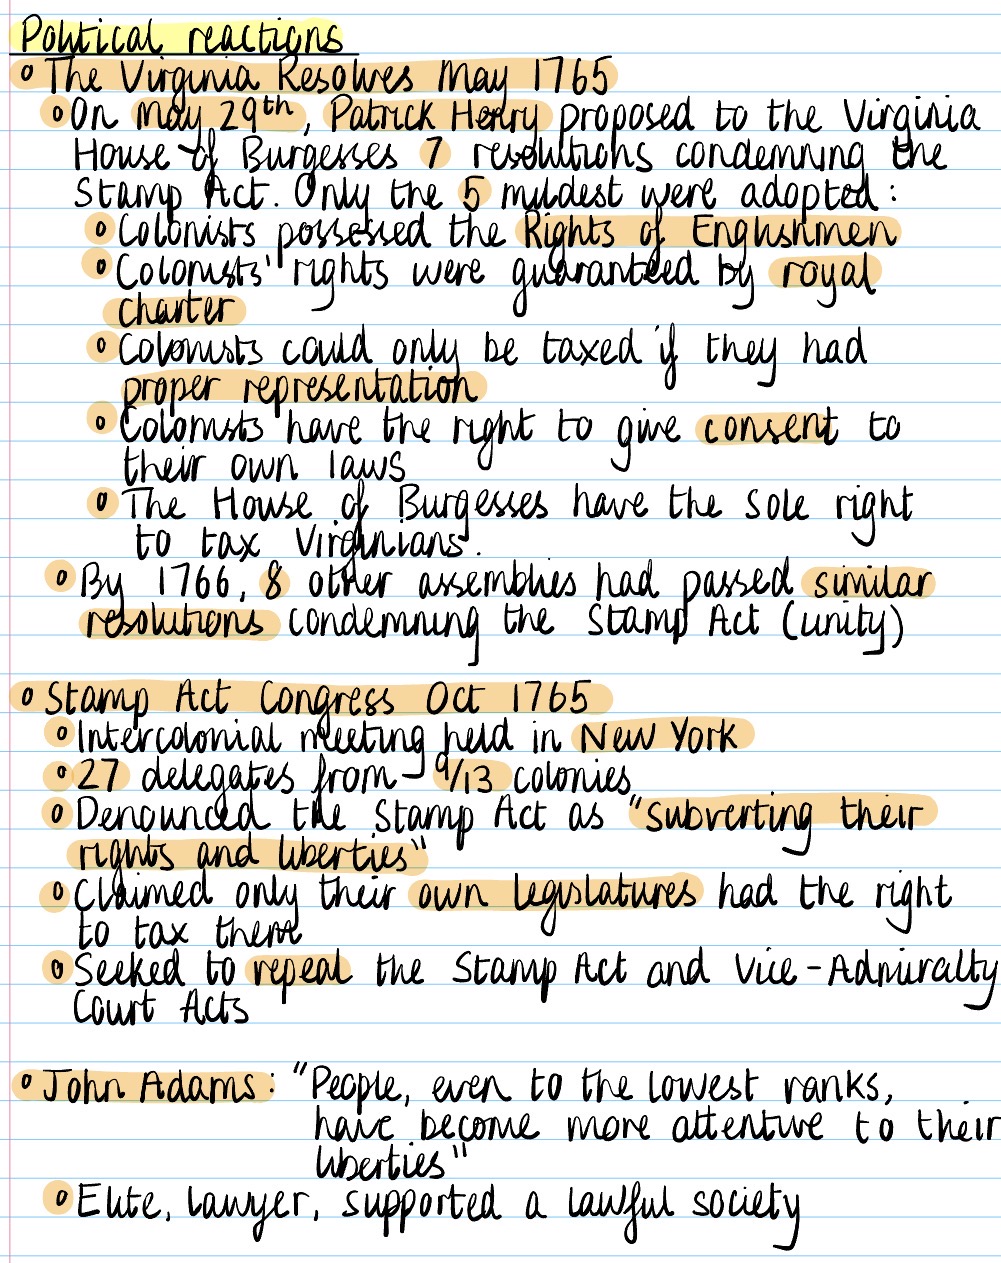 Political reactions
The Virginia Resolves May 1765
On May 29th, Patrick Henry proposed to the Virginia
House of Burgesses 7 resolutions condemning the
Stamp Act. Only the 5 mildest were adopted:
Colonists possessed the Rights of Englishmen
Colonists' rights were guaranteed by royal
charter
Colonists could only be taxed if they had
proper representation
Colonists have the right to give consent to
their own laws
The House of Burgesses have the sole right
to tax Virginians.
By 1766, 8 other assemblies had passed similar
resolutions condemning the Stamp Act (unity)
Stamp Act Congress Oct 1765
Intercolonial meeting held in New York
27 delegates from 9/13 colonies
Denounced the Stamp Act as "subverting their
rights and liberties"
Claimed only their own legislatures had the right
to tax them
Seeked to repeal the Stamp Act and Vice-Admiralty
Court Acts
John Adams: "People, even to the lowest ranks,
have become more attentive to their
liberties"
Elite, lawyer, supported a lawful society